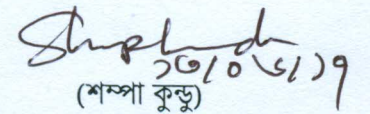 ১৩/০৬/১৭
(শম্পা কুন্ডু)